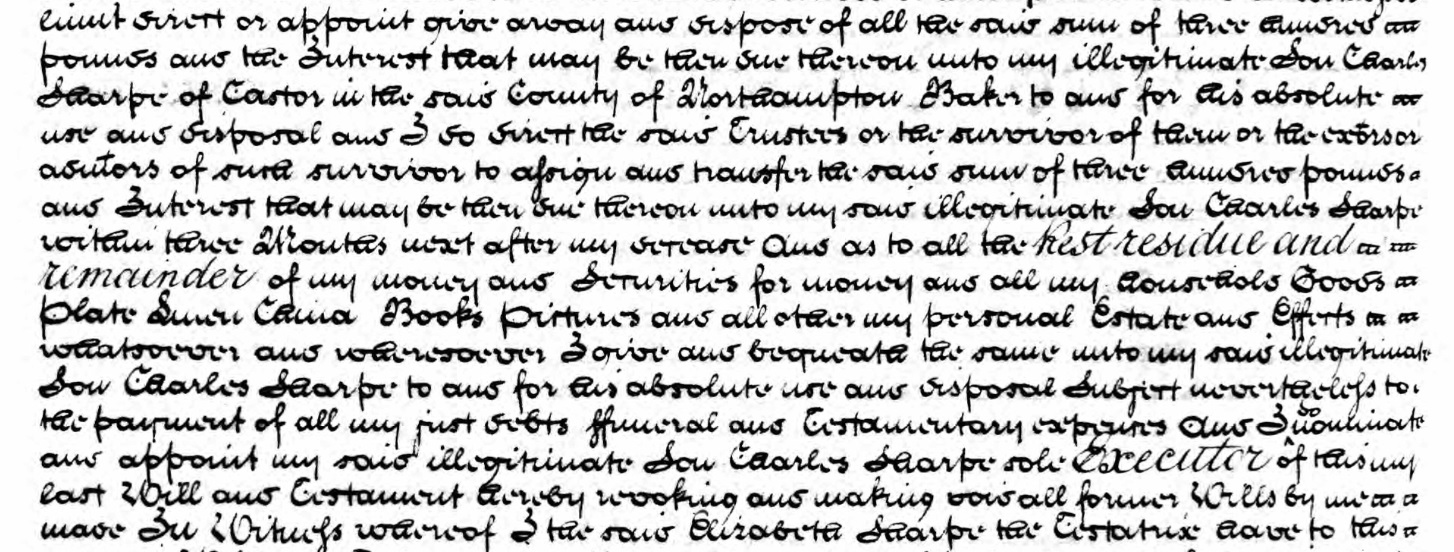 limit direct or appoint give away and dispose of all the said sum of three hundred
pounds and the Interest that may be then due thereon unto my illegitimate Son Charles
Sharpe of Castor in the said County of Northampton Baker to and for his absolute
use and disposal and I do direct the said Trustees or the survivor of them or the exõrs or
adm̃tors of such survivor to assign and transfer the said sum of three hundred pounds
and Interest that may be then due thereon unto my said illegitimate Son Charles Sharpe
within three Months next after my decease And as to all the Rest residue and
remainder of my money and Securities for money and all my household Goods
Plate Linen China Books Pictures and all other my personal Estate and Effects
whatsoever and wheresoever I give and bequeath the same unto my said illegitimate
Son Charles Sharpe to and for his absolute use and disposal Subject nevertheless to
the payment of all my just debts ffuneral and Testamentary expenses And I do nominate
and appoint my said illegitimate Son Charles Sharpe sole Executor of this my
last Will and Testament hereby revoking and making void all former Wills by me
made In Witness whereof I the said Elizabeth Sharpe the Testatrix have to this